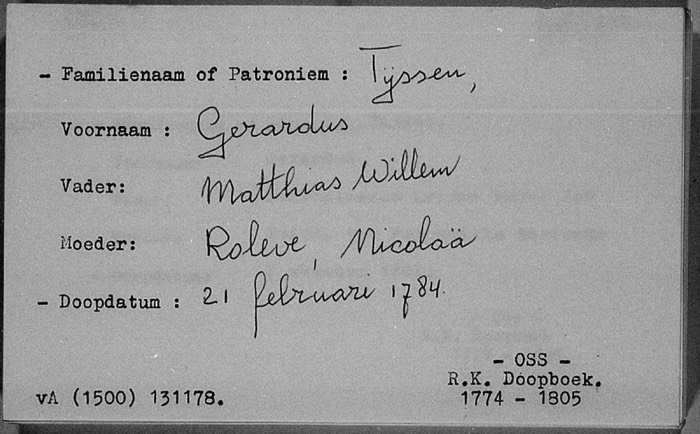 - Familienaam of Patroniem : Tÿssen,
Voornaam : Gerardus
Vader: Matthias Willem
Moeder: Roleve, Nicolaä
- Doopdatum : 21 februari 1784.
- OSS -
R.K. Doopboek.
vA (1500) 131178.
1774 - 1805